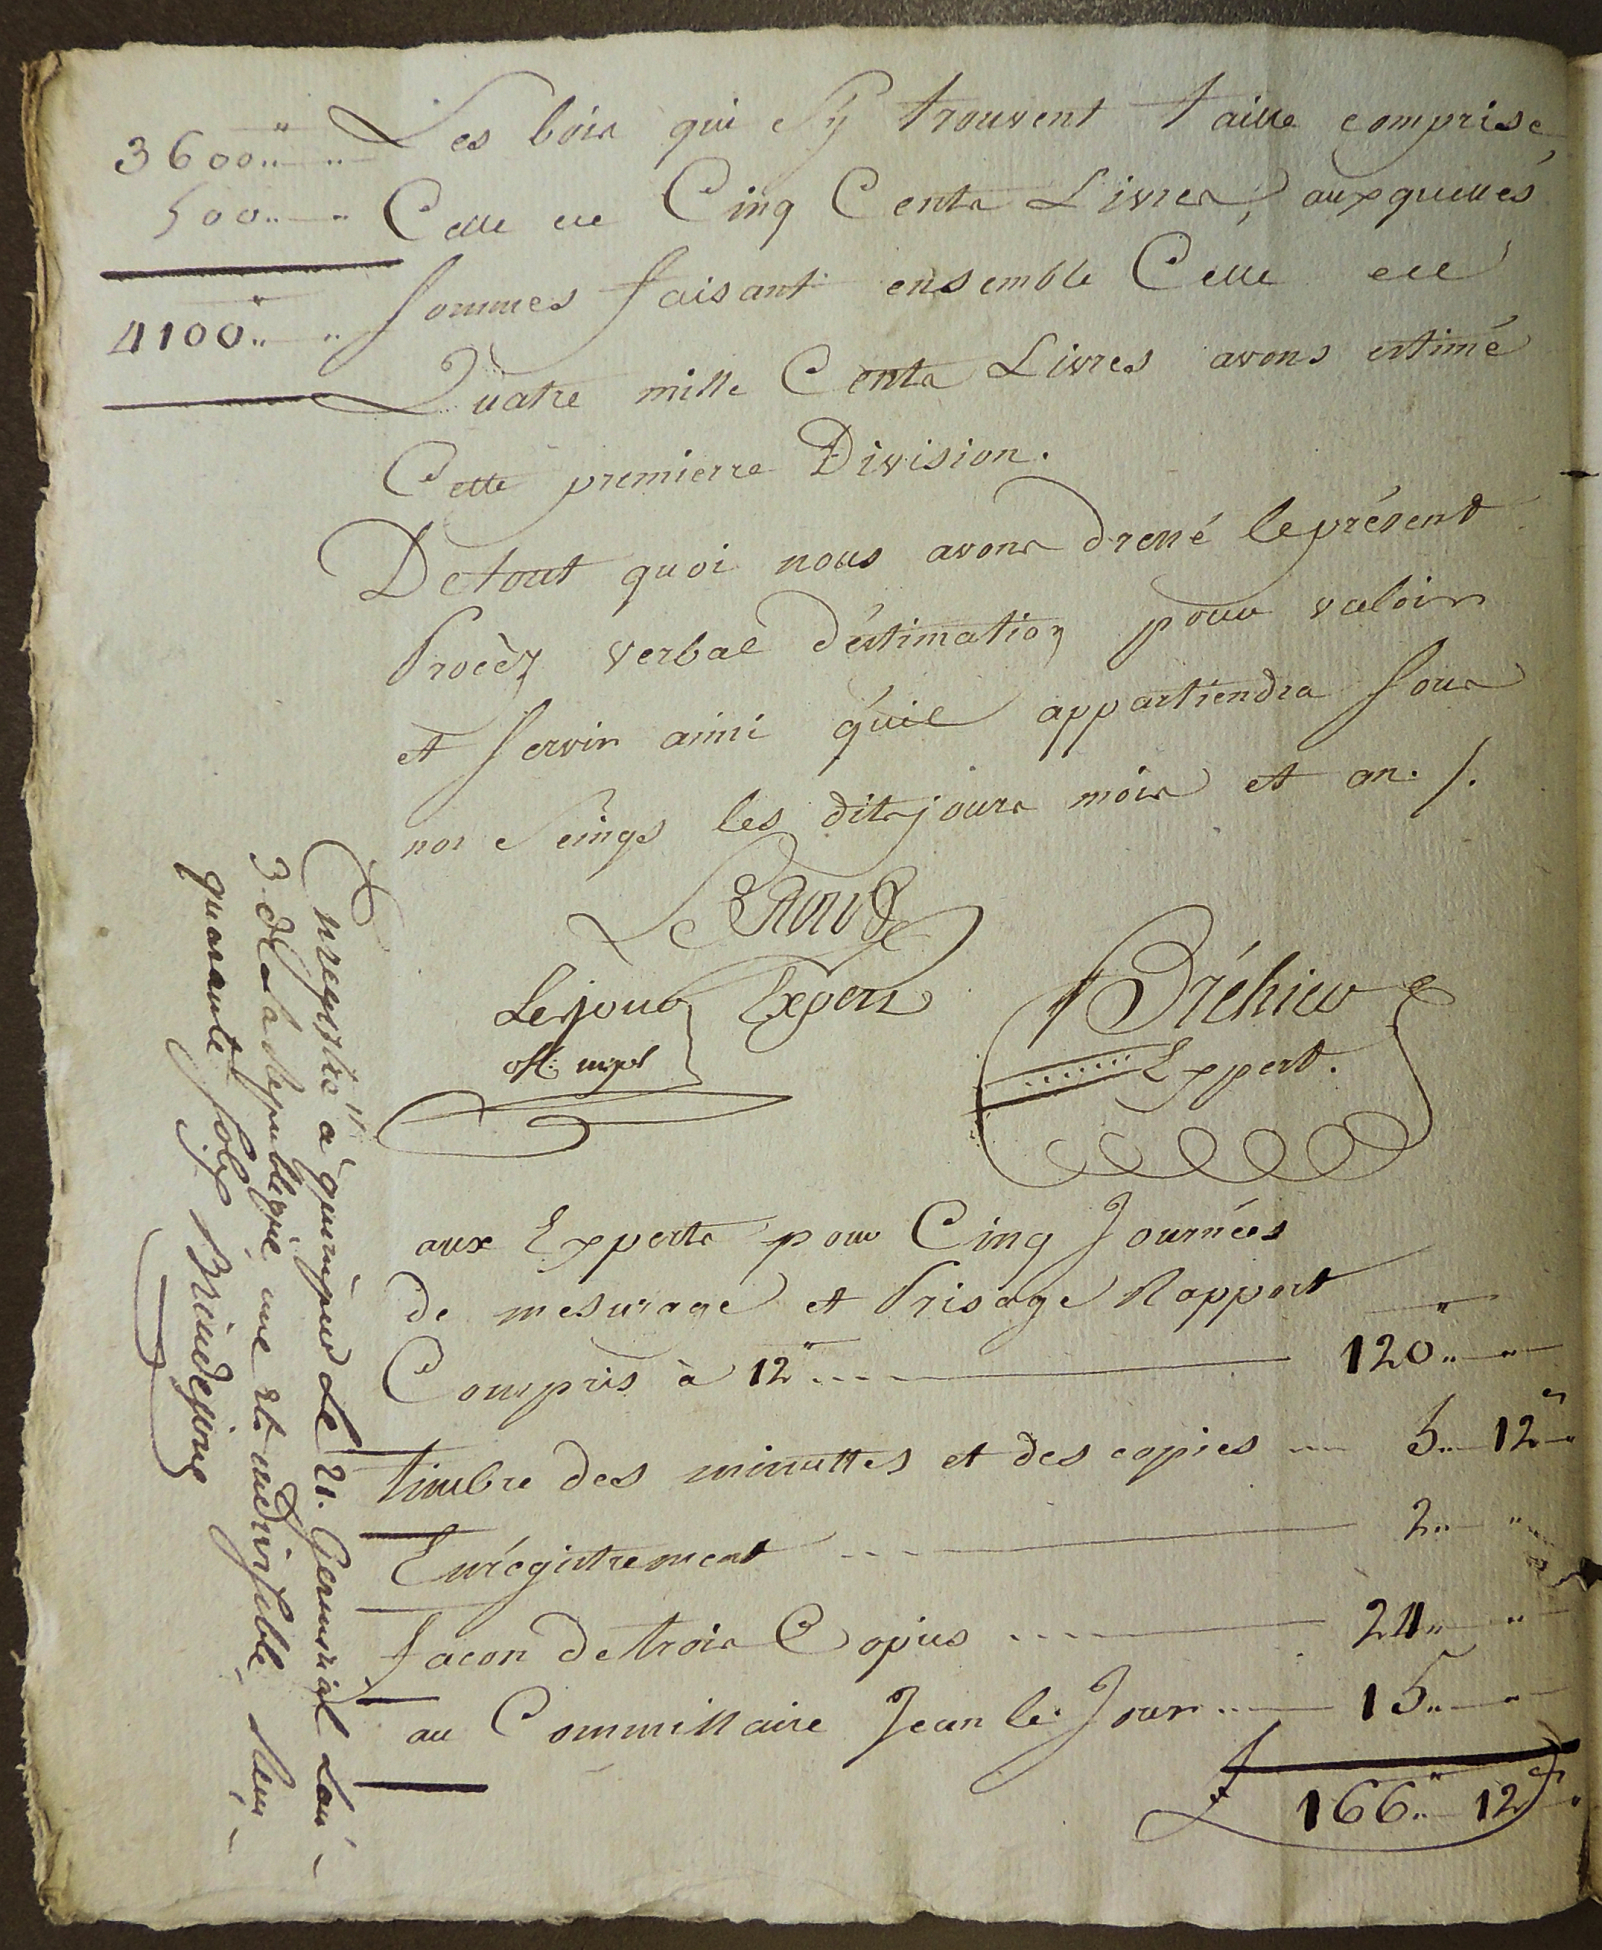 3600.. " .. Les bois qui s'y trouvent taille comprise
500.. .. Celle de Cinq Cents Livres, auxquelles
sommes faisant ensemble Celle de
4100.. " .. Quatre mille Cents Livres avons estimé
Cette premierre Division.
De tout quoi nous avons dressé le présent
Procèz verbal d'éstimation pour valoir
et servir ainsi qu'il appartiendra sous
nos seings les dits jours mois et an. /.
Le jour Expert
off. mpl
Bréhier
Expert.
aux Experts pour Cinq Journées
de mesurage et Prisage Rapport
Compris à 12" ... 120.. "
timbre des minuttes et des copies ... 5.. 12 s
Enrégistrement ... 2.. "
facon de trois Copies ... 24.. "
au Commissaire Jean le Jour ... 15.. "
166.. 12 s
Enregistré à quimper Le 21. Germinal Lan
3. de la Republique une et indivisible, Reçu
quarante sols